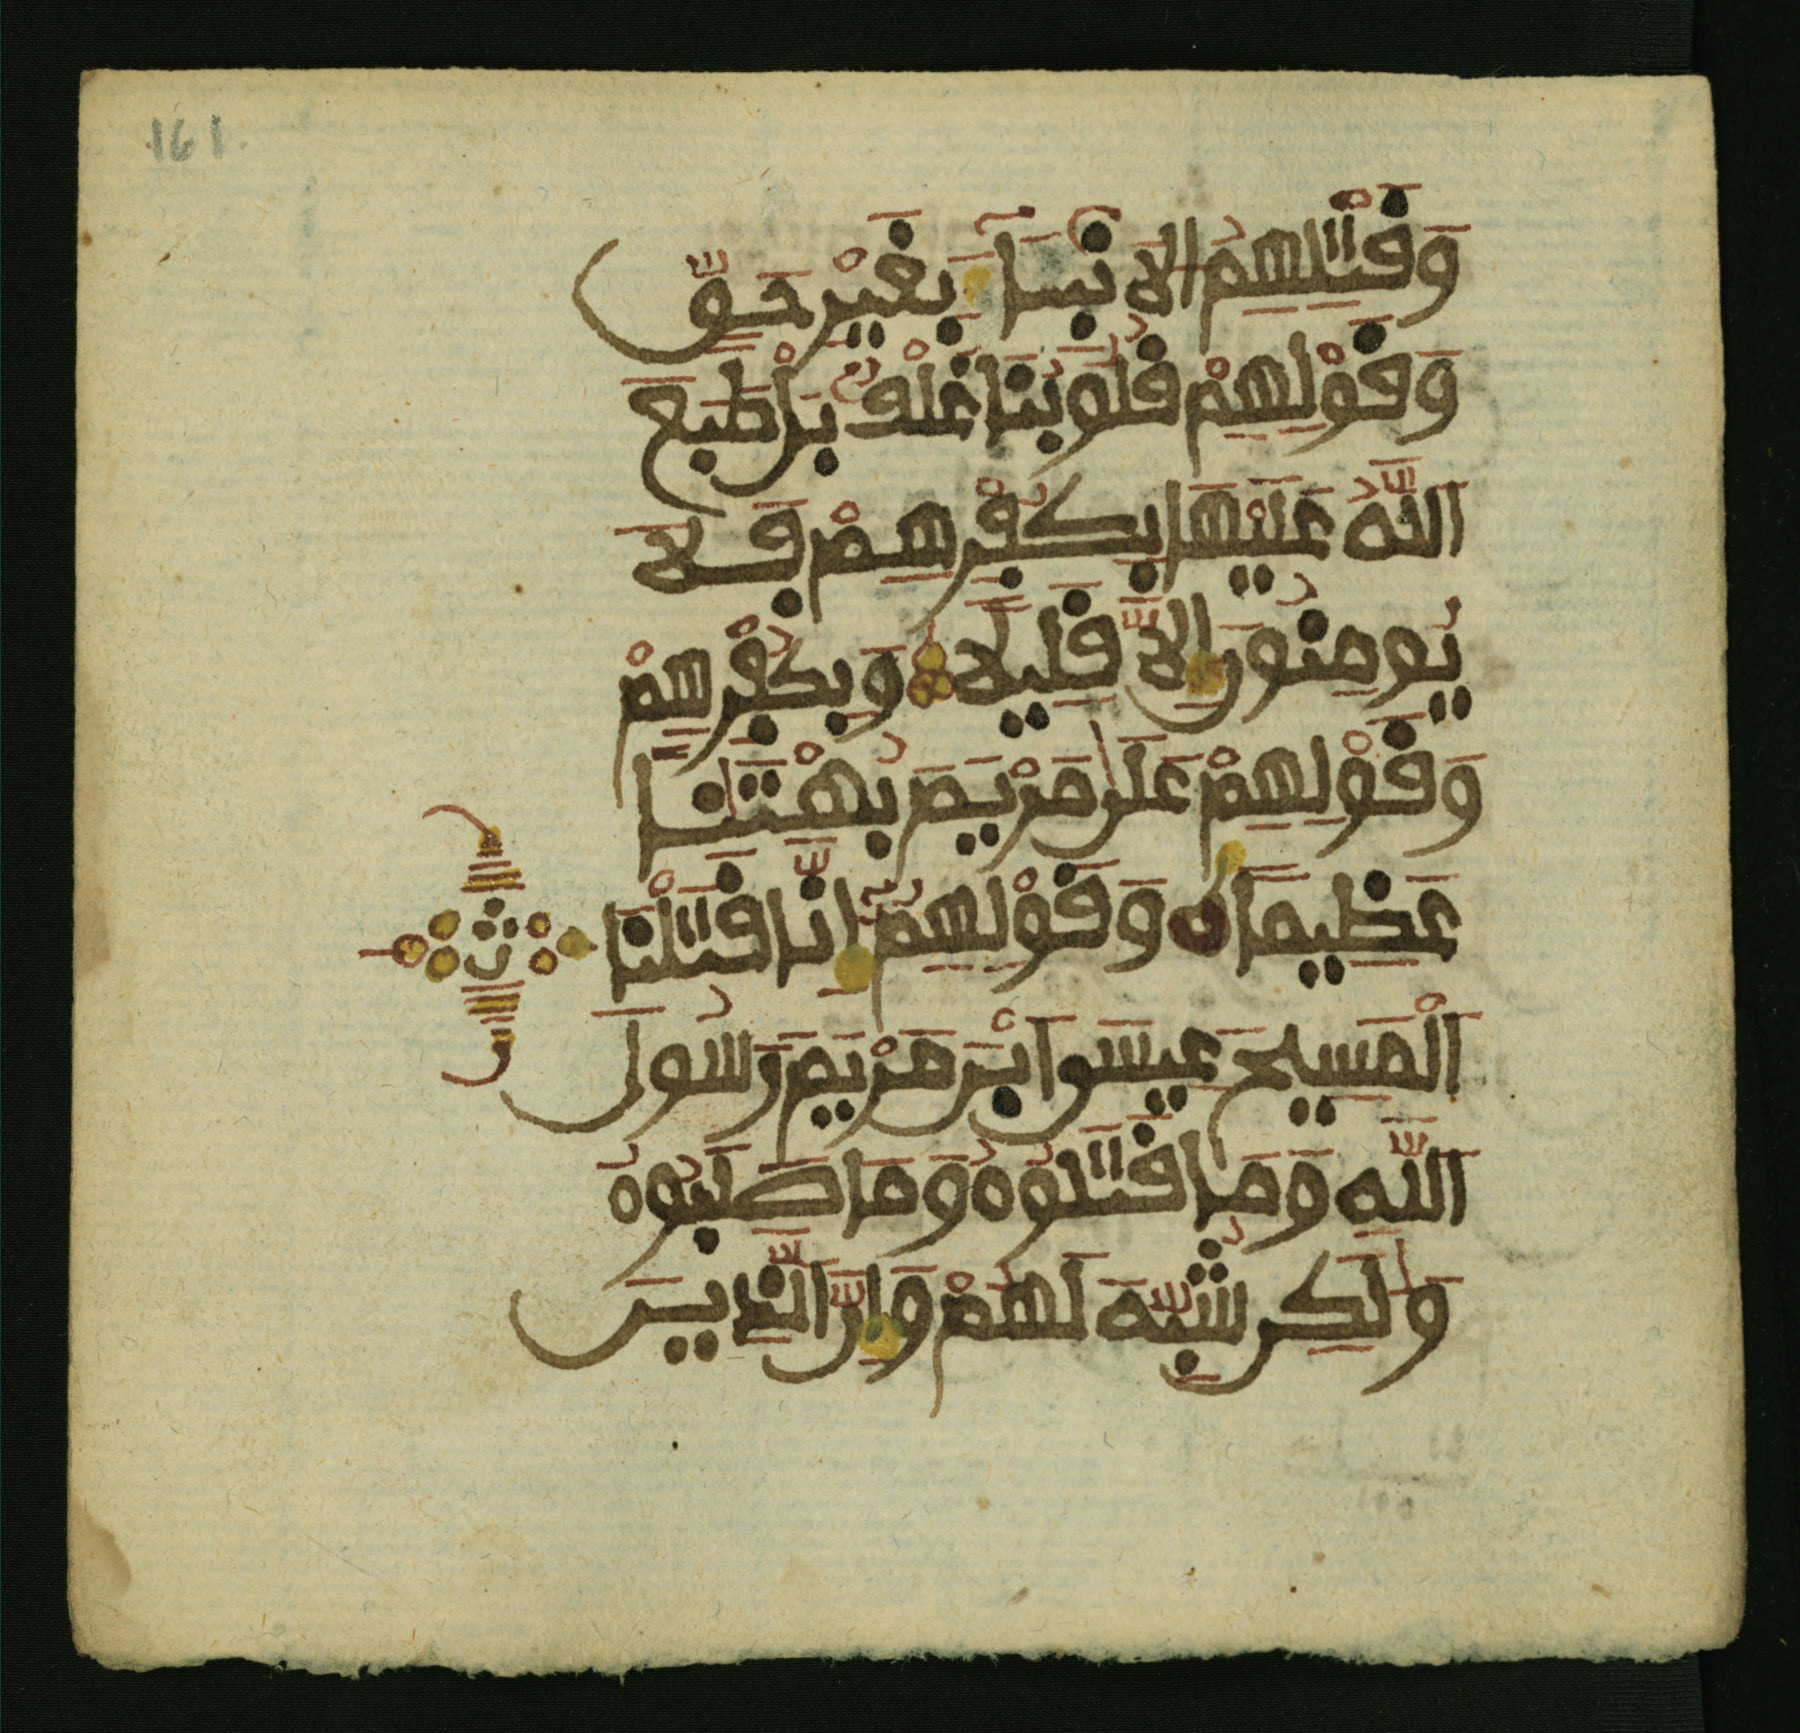 161.
وَقَتْلِهِمُ الَانۢبِيَآءَ بِغَيْرِ حَقٍّ
وَقَوْلِهِمْ قُلُوبُنَا غُلْفٌۢ بَلْ طَبَعَ
اللَّهُ عَلَيْهَا بِكُفْرِهِمْ فَلَا
يُومِنُونَ إِلَّا قَلِيلًا وَبِكُفْرِهِمْ
وَقَوْلِهِمْ عَلَىٰ مَرْيَمَ بُهْتَٰنًا
عَظِيمًا وَقَوْلِهِمُۥٓ إِنَّا قَتَلْنَا
الْمَسِيحَ عِيسَى ابْنَ مَرْيَمَ رَسُولَ
اللَّهِ وَمَا قَتَلُوهُ وَمَا صَلَبُوهُ
وَلَٰكِن شُبِّهَ لَهُمْ وَإِنَّ الَّذِينَ
ث